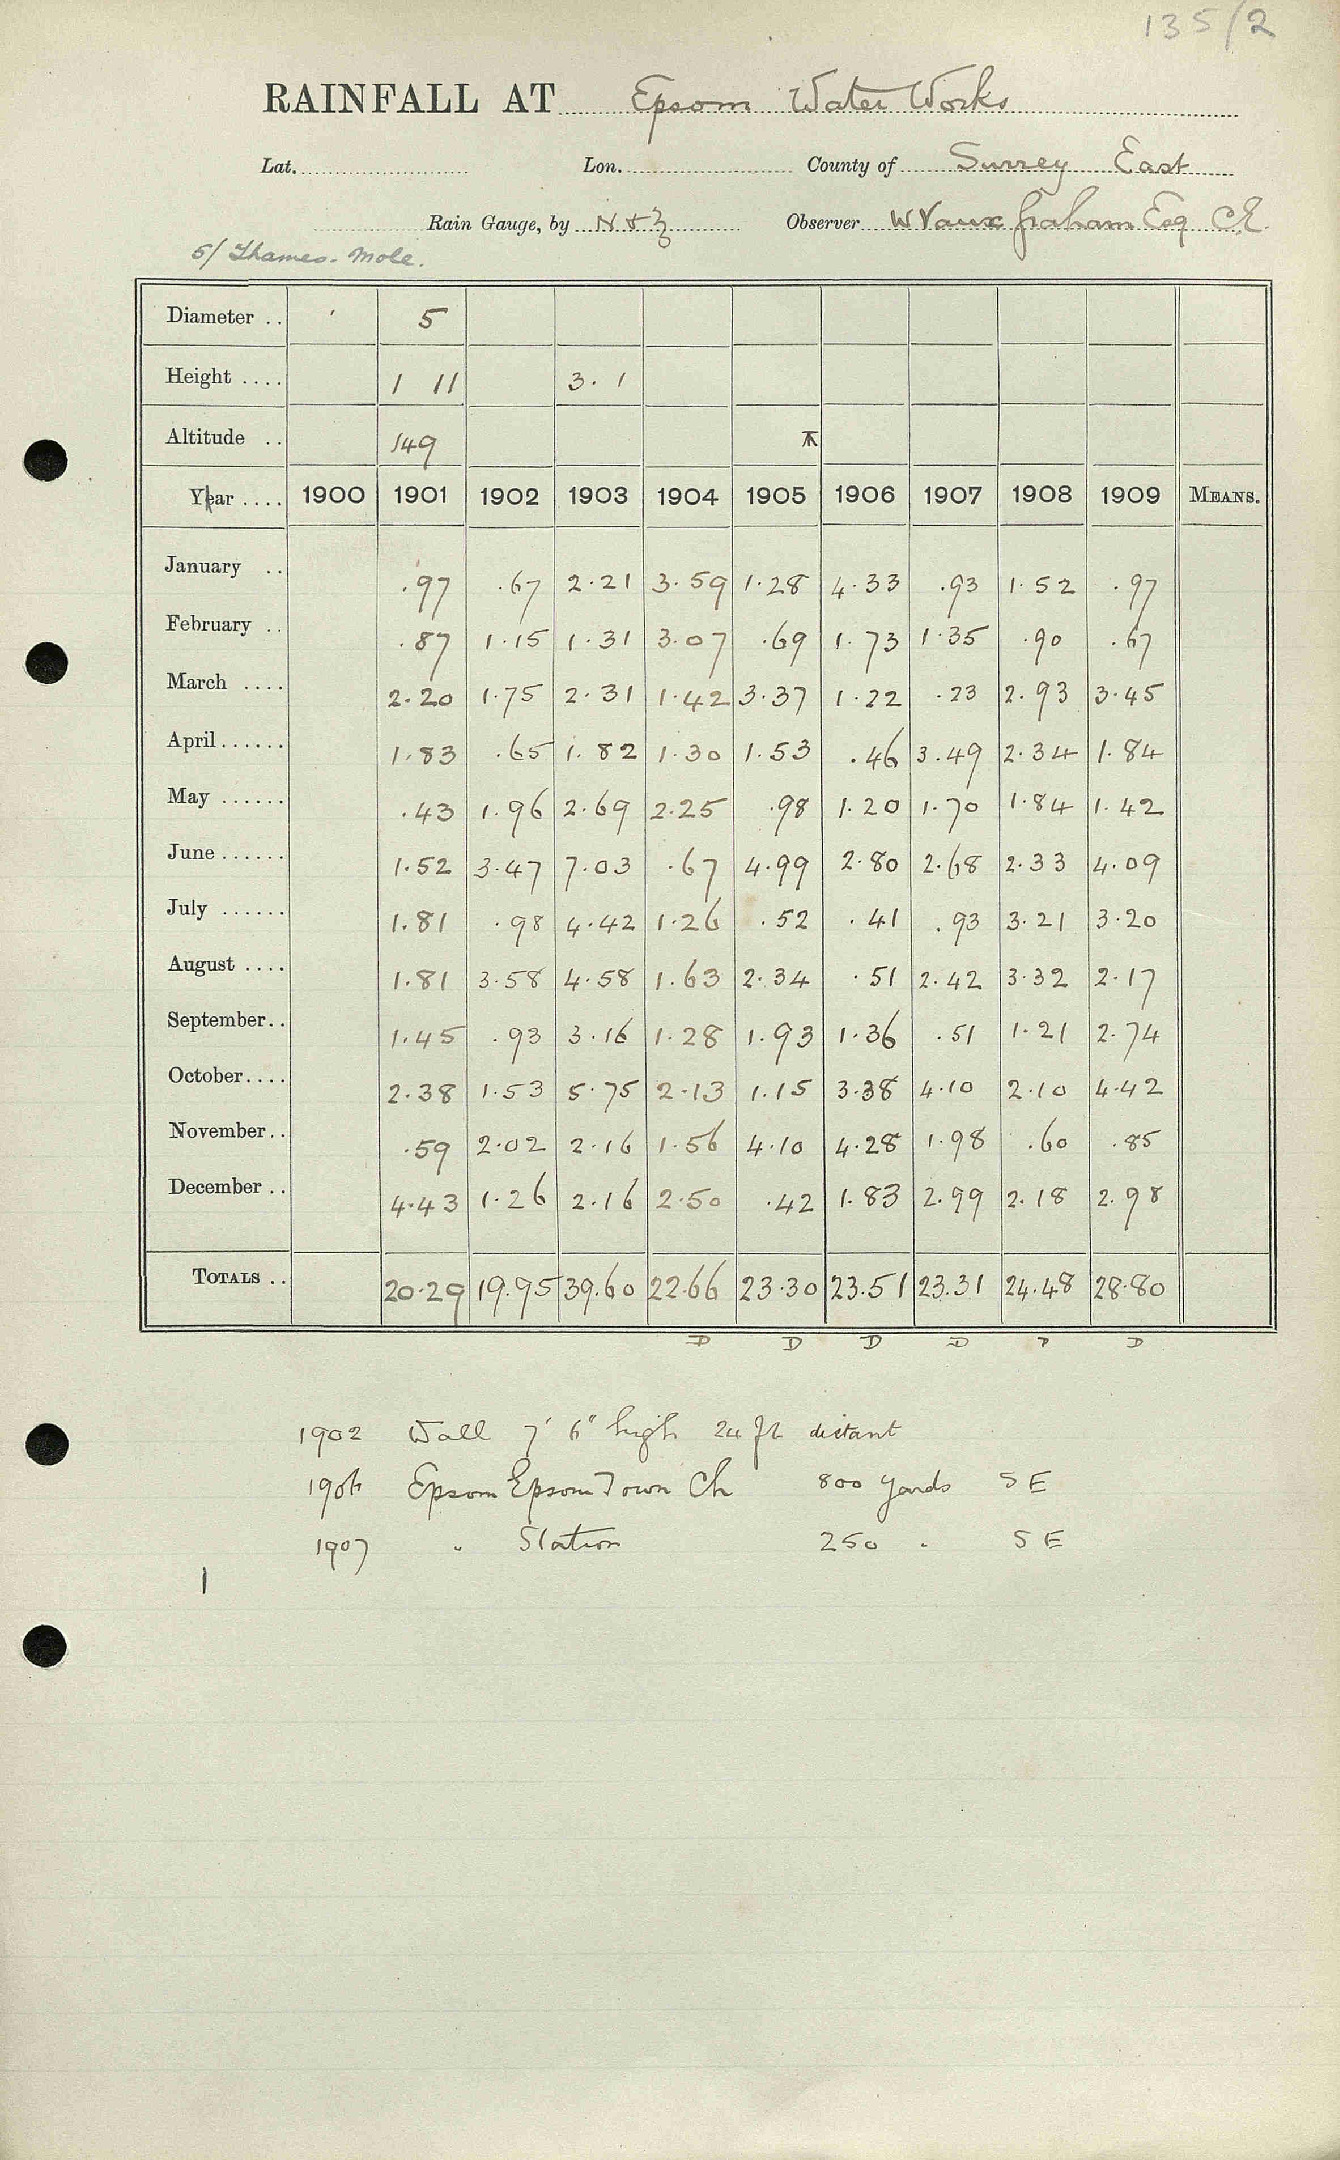 135/2
RAINFALL AT Epsom Water Works
Lat. Lon. County of Surrey East
Rain Gauge, by N & Z Observer W Vaux Graham Esq CE
5/ Thames-Mole.
Diameter .. 5
Height .... 1 11 3.1
Altitude .. 149
Year .... 1900 1901 1902 1903 1904 1905 1906 1907 1908 1909 MEANS.
January .. .97 .67 2.21 3.59 1.28 4.33 .93 1.52 .97
February .. .87 1.15 1.31 3.07 .69 1.73 1.35 .90 .67
March .... 2.20 1.75 2.31 1.42 3.37 1.22 .23 2.93 3.45
April...... 1.83 .65 1.82 1.30 1.53 .46 3.49 2.34 1.84
May ...... .43 1.96 2.69 2.25 .98 1.20 1.70 1.84 1.42
June...... 1.52 3.47 7.03 .67 4.99 2.80 2.68 2.33 4.09
July ...... 1.81 .98 4.42 1.26 .52 .41 .93 3.21 3.20
August .... 1.81 3.58 4.58 1.63 2.34 .51 2.42 3.32 2.17
September.. 1.45 .93 3.16 1.28 1.93 1.36 .51 1.21 2.74
October.... 2.38 1.53 5.75 2.13 1.15 3.38 4.10 2.10 4.42
November.. .59 2.02 2.16 1.56 4.10 4.28 1.98 .60 .85
December .. 4.43 1.26 2.16 2.50 .42 1.83 2.99 2.18 2.98
TOTALS .. 20.29 19.95 39.60 22.66 23.30 23.51 23.31 24.48 28.80
D D D D D D
1902 Wall 7' 6" high 24 ft distant
1906 Epsom Epsom Town Ch 800 yards S E
1907 " Station 250 " S E